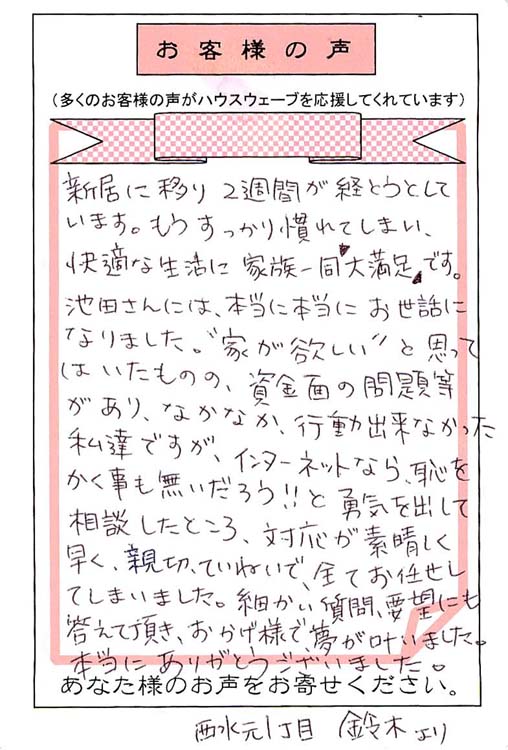 お客様の声
(多くのお客様の声がハウスウェーブを応援してくれています)
新居に移り 2週間が経とうとして
います。もうすっかり慣れてしまい、
快適な生活に 家族一同"大満足"です。
池田さんには、本当に本当に お世話に
なりました。"家が欲しい"と思って
はいたものの、資金面の問題等
があり、なかなか、行動出来なかった
私達ですが、インターネットなら、恥を
かく事も無いだろう!!と勇気を出して
相談したところ、対応が素晴しく
早く、親切、ていねいで、全てお任せし
てしまいました。細かい質問、要望にも
答えて頂き、おかげ様で、夢が叶いました。
本当にありがとうございました。
あなた様のお声をお寄せください。
西水元1丁目 鈴木より